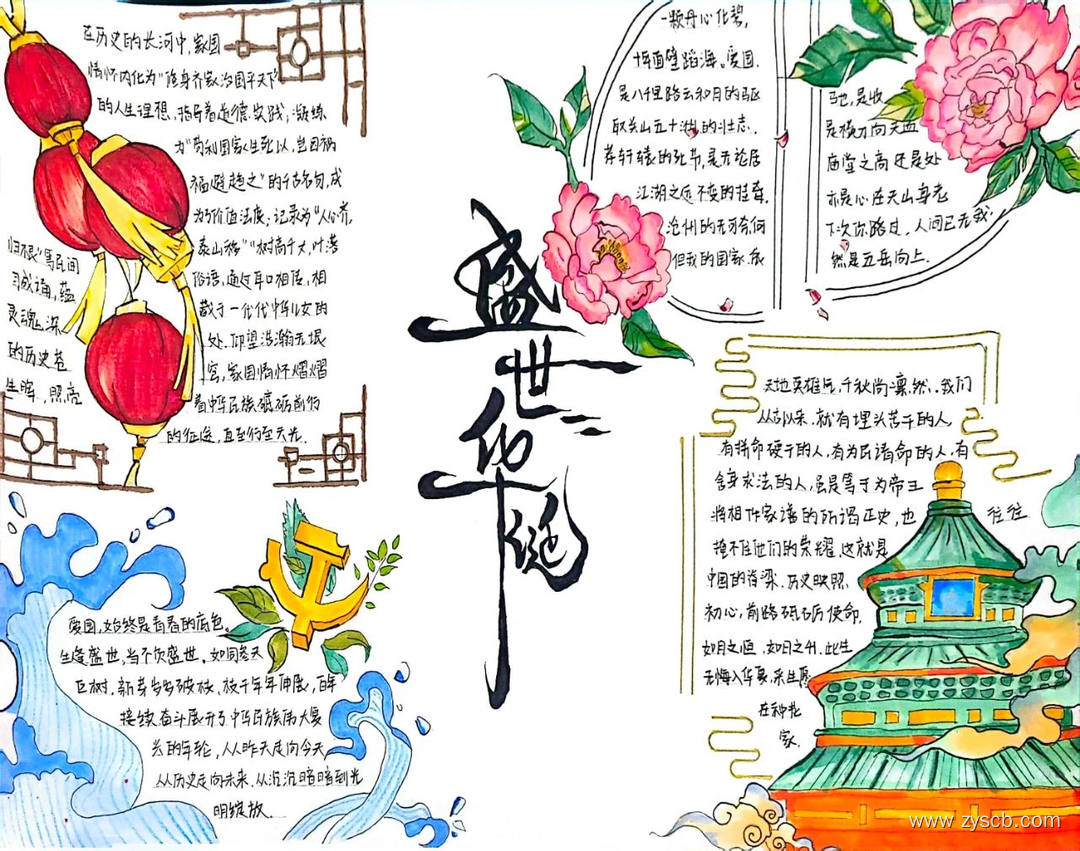 在历史的长河中，家国
情怀内化为“修身齐家治国平天下”
的人生理想，指导着道德实践；凝练
为“苟利国家生死以，岂因祸
福避趋之”的千古名句，成
为价值法度；记录为“人心齐，
泰山移”“树高千丈，叶落
归不根”等民间俗语，通过耳口相传，相
习成诵，蕴藏于一代代中华儿女的
灵魂深处。仰望浩瀚无垠
的历史苍穹，家国情怀熠熠
生晖，照亮着中华民族砥砺前行
的征途，直至行至天光.
一颗丹心化碧，
挥面壁蹈海。爱国.
是八千里路云和月的驱
驰，是收取关山五十州的壮志.
是横刀向天血荐轩辕的死节，是无论居
庙堂之高还是处江湖之远不变的挂牵，
亦是心在天山身老沧州的无可奈何
下次你路过，人间已无我
但我的国家，依然是五岳向上.
盛世华诞
天地英雄气，千秋尚凛然，我们
从古以来，就有埋头苦干的人，
有拼命硬干的人，有为民请命的人，有
舍身求法的人，虽是等于为帝王
将相作家谱的所谓正史，也往往
掩不住他们的荣耀，这就是
中国的脊梁，历史映照
初心，前路砥砺使命.
如月之恒，如日之升，此生
无悔入华夏，来生愿
在种花
家.
爱国，始终是青春的底色。
生逢盛世，当不负盛世，如同参天
巨树，新芽岁岁破枝，枝干年年伸展，百年
接续奋斗展开了中华民族伟大复
兴的年轮，从昨天走向今天
从历史走向未来，从沉沉暗暗到光
明绽放.
www.zyscb.com